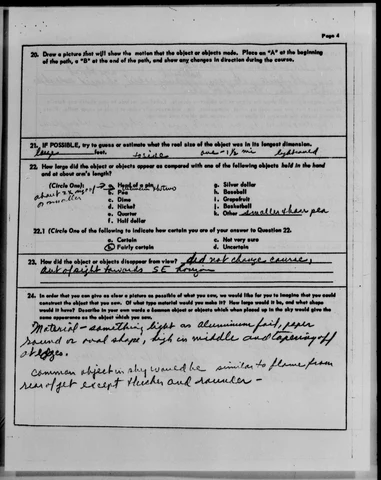 Page 4
20. Draw a picture that will show the motion that the object or objects made. Place an "A" at the beginning
of the path, a "B" at the end of the path, and show any changes in direction during the course.
21. IF POSSIBLE, try to guess or estimate what the real size of the object was in its longest dimension.
large feet. over - 1/2 mi
22. How large did the object or objects appear as compared with one of the following objects held in the hand
and at about arm's length?
(Circle One): a. Head of a pin g. Silver dollar
about b. Pea h. Baseball
or smaller c. Dime i. Grapefruit
d. Nickel j. Basketball
e. Quarter k. Other smaller than pea
f. Half dollar
22.1 (Circle One of the following to indicate how certain you are of your answer to Question 22.
a. Certain c. Not very sure
b. Fairly certain d. Uncertain
23. How did the object or objects disappear from view? did not change course,
out of sight towards SE horizon
24. In order that you can give as clear a picture as possible of what you saw, we would like for you to imagine that you could
construct the object that you saw. Of what type material would you make it? How large would it be, and what shape
would it have? Describe in your own words a common object or objects which when placed up in the sky would give the
same appearance as the object which you saw.
Material - something light as aluminum foil, paper
round or oval shape, high in middle and tapering off
at edges.
Common object in sky would be similar to flame from
rear of jet except thicker and rounder -